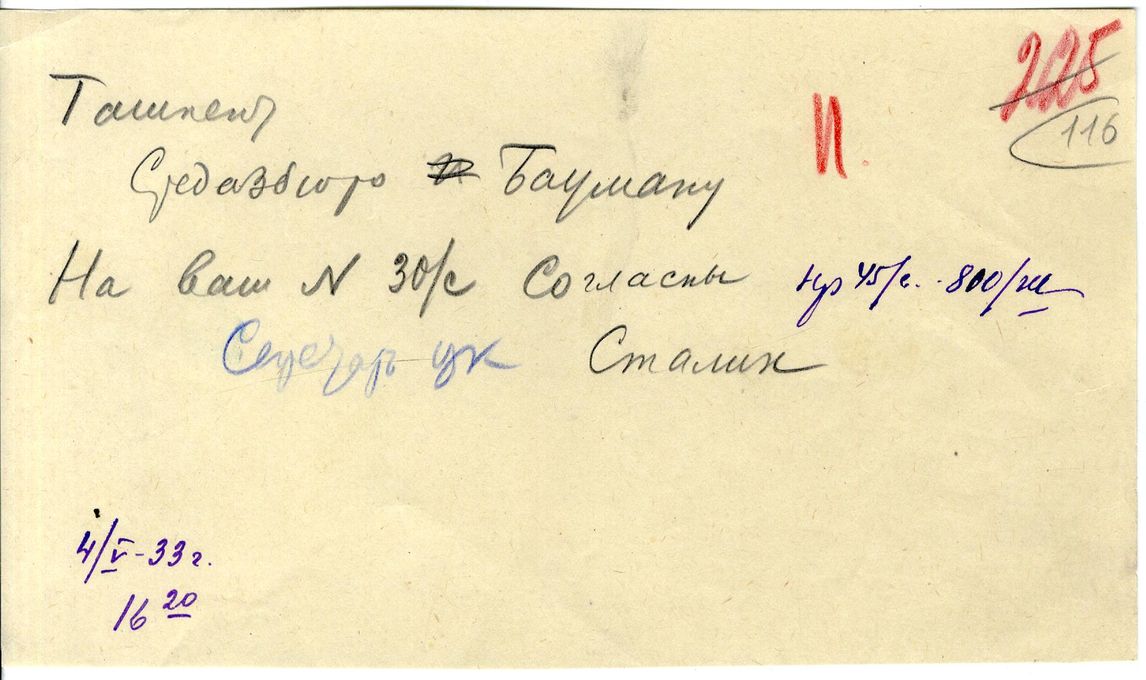 225
116
И.
Ташкент
Средазбюро Бауману
На ваш N 30/с Согласны нр 45/с. 800/ш
Секретарь ЦК Сталин
4/V-33 г.
16 20